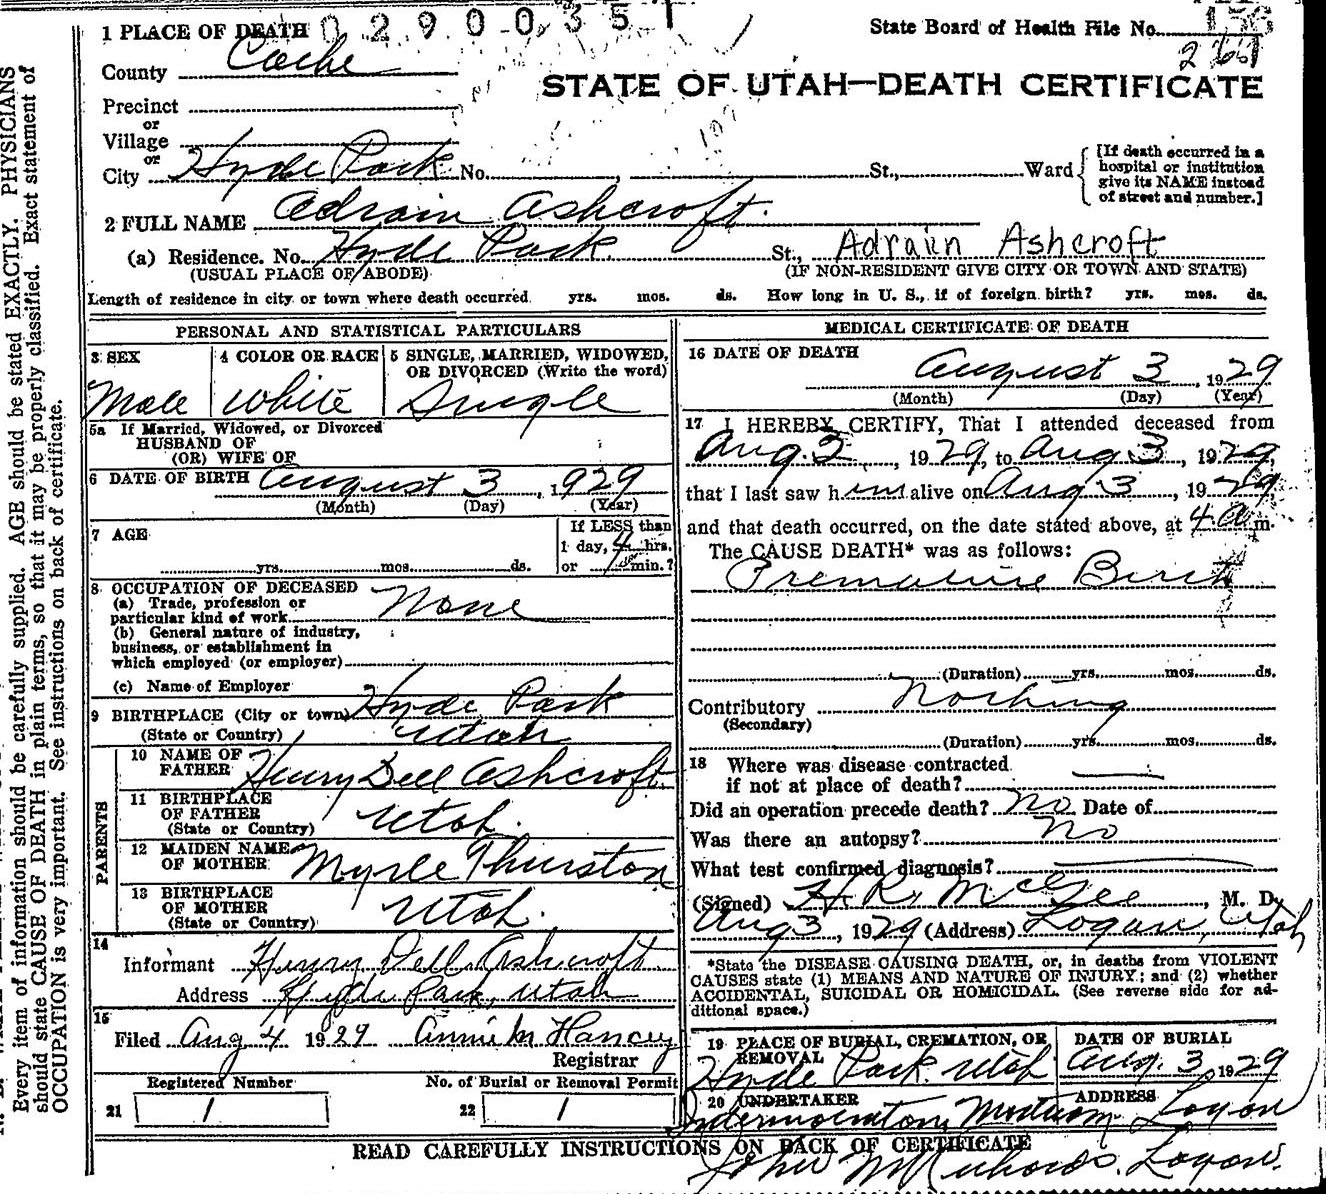 0 2 9 0 0 3 5 1
1 PLACE OF DEATH
State Board of Health File No. 156
267
County Cache
STATE OF UTAH—DEATH CERTIFICATE
Precinct
or
Village
or
City Hyde Park No. , St., Ward
[If death occurred in a hospital or institution give its NAME instead of street and number.]
2 FULL NAME Adrain Ashcroft.
(a) Residence. No. Hyde Park. St., Adraiin Ashcroft
(USUAL PLACE OF ABODE) (IF NON-RESIDENT GIVE CITY OR TOWN AND STATE)
Length of residence in city or town where death occurred yrs. mos. ds. How long in U. S., if of foreign birth? yrs. mos. ds.
PERSONAL AND STATISTICAL PARTICULARS
3 SEX
Male
4 COLOR OR RACE
White
5 SINGLE, MARRIED, WIDOWED,
OR DIVORCED (Write the word)
Single
5a If Married, Widowed, or Divorced
HUSBAND OF
(OR) WIFE OF
6 DATE OF BIRTH August 3, 1929
(Month) (Day) (Year)
7 AGE
yrs. mos. ds.
If LESS than
1 day, 4 hrs.
or min.?
8 OCCUPATION OF DECEASED
(a) Trade, profession or
particular kind of work None
(b) General nature of industry,
business, or establishment in
which employed (or employer)
(c) Name of Employer
9 BIRTHPLACE (City or town) Hyde Park
(State or Country) Utah
PARENTS
10 NAME OF
FATHER Henry Dell Ashcroft.
11 BIRTHPLACE
OF FATHER
(State or Country) Utah.
12 MAIDEN NAME
OF MOTHER Myrle Thurston
13 BIRTHPLACE
OF MOTHER
(State or Country) Utah.
14
Informant Henry Dell Ashcroft
Address Hyde Park, Utah
15
Filed Aug 4 1929 Annie M Hancey
Registrar
Registered Number No. of Burial or Removal Permit
21 1 22 1
MEDICAL CERTIFICATE OF DEATH
16 DATE OF DEATH
August 3, 1929
(Month) (Day) (Year)
17 I HEREBY CERTIFY, That I attended deceased from
Aug. 3, 1929, to Aug 3, 1929,
that I last saw him alive on Aug 3, 1929,
and that death occurred, on the date stated above, at 4 a m.
The CAUSE DEATH* was as follows:
Premature Birth
(Duration) yrs. mos. ds.
Contributory Nothing
(Secondary)
(Duration) yrs. mos. ds.
18 Where was disease contracted
if not at place of death?
Did an operation precede death? no Date of
Was there an autopsy? no
What test confirmed diagnosis?
(Signed) H. R. McGee, M. D.
Aug 3, 1929 (Address) Logan, Utah
*State the DISEASE CAUSING DEATH, or, in deaths from VIOLENT
CAUSES state (1) MEANS AND NATURE OF INJURY; and (2) whether
ACCIDENTAL, SUICIDAL OR HOMICIDAL. (See reverse side for ad-
ditional space.)
19 PLACE OF BURIAL, CREMATION, OR
REMOVAL
Hyde Park. Utah
DATE OF BURIAL
Aug. 3, 1929
20 UNDERTAKER ADDRESS
Logan
READ CAREFULLY INSTRUCTIONS ON BACK OF CERTIFICATE
John M Richards. Logan.
Every item of information should be carefully supplied. AGE should be stated EXACTLY. PHYSICIANS
should state CAUSE OF DEATH in plain terms, so that it may be properly classified. Exact statement of
OCCUPATION is very important. See instructions on back of certificate.